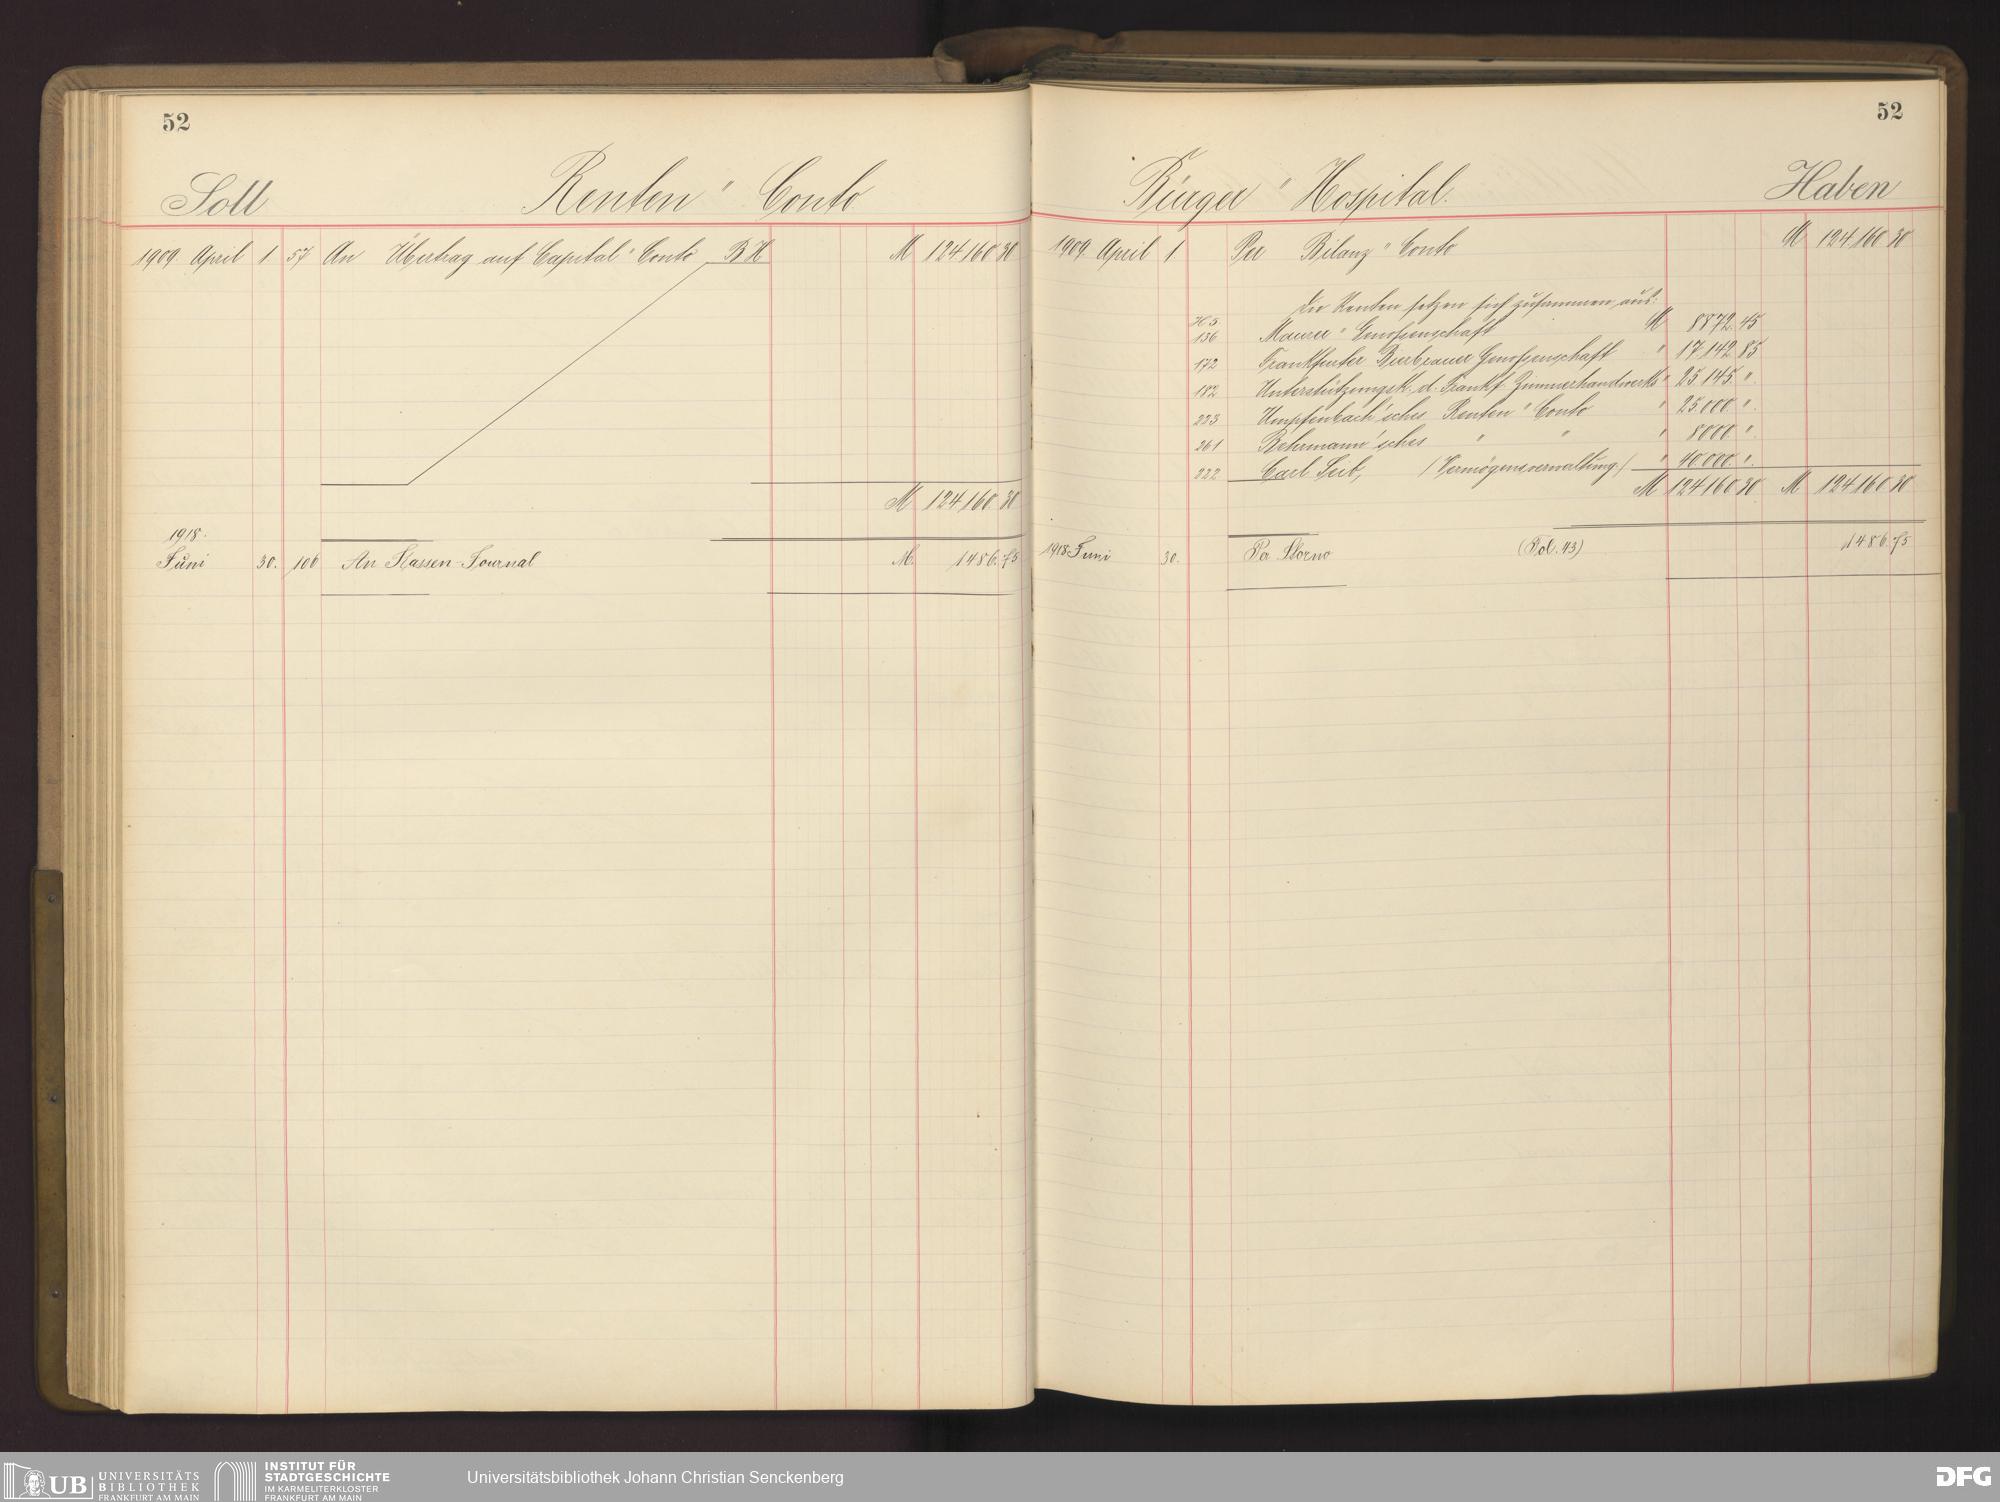 52
Soll Renten " Conto
1909 April 1. 57 An Übertrag auf Capital " Conto B H M 124.160 30
M 124.160. 30
1918.
Juni 30. 106 An Kassen-Journal M. 1486. 75
52
Bürger " Hospital. Haben
1909. April 1 Per Bilanz " Conto M 124.160 30
Die Renten setzen sich zusammen aus:
H 5.
136 Maurer " Genossenschaft M 8872. 45
172 Frankfurter Bierbrauer Genossenschaft " 17.142 85
182 Unterstützungsk. d. Frankf. Zimmerhandwerks " 25.145. ".
223 Umpfenbach'sches Renten " Conto " 25.000. ".
261 Rehrmann'sches " " " 8000 ".
222 Carl Seib, (Vermögensverwaltung) " 40.000. ".
M 124160 30 M 124160 30
1918. Juni 30. Per Storno (Fol. 43) 1486. 75
UB UNIVERSITÄTS
BIBLIOTHEK
FRANKFURT AM MAIN
INSTITUT FÜR
STADTGESCHICHTE
IM KARMELITERKLOSTER
FRANKFURT AM MAIN
Universitätsbibliothek Johann Christian Senckenberg
DFG